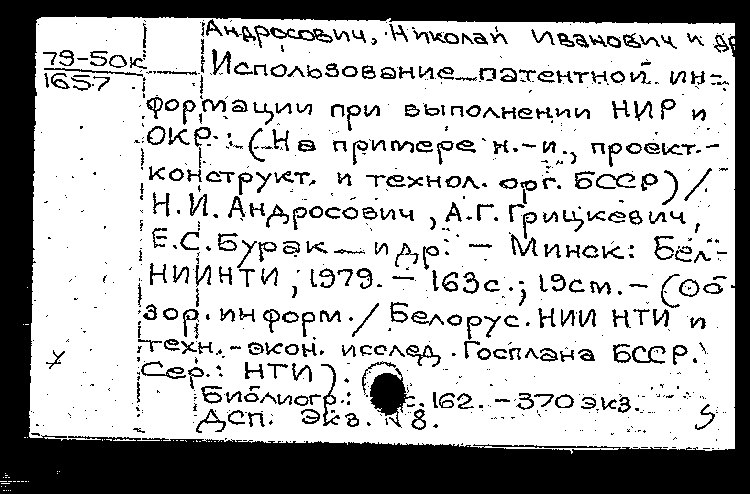 Андросович, Николай Иванович и др
79-50к
1657
Использование патентной ин-
формации при выполнении НИР и
ОКР.: (На примере н.-и., проект.-
конструкт. и технол. орг. БССР) /
Н.И. Андросович, А.Г. Грицкевич,
Е.С. Бурак и др. - Минск: Бел-
НИИНТИ, 1979. - 163с.; 19см. - (Об-
зор. информ. / Белорус. НИИ НТИ и
техн.-экон. исслед. Госплана БССР.
Сер.: НТИ).
Библиогр.: с. 162. - 370 экз.
ДСП. Экз. N 8.